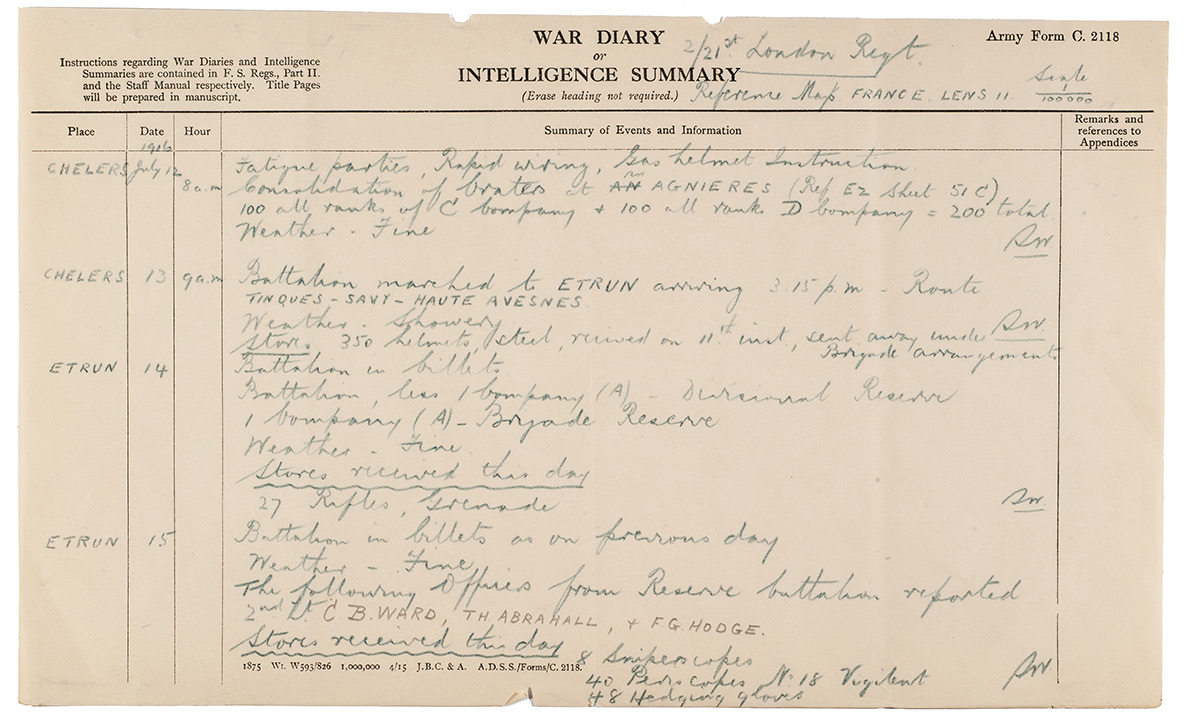 WAR DIARY
or
INTELLIGENCE SUMMARY
(Erase heading not required.)
Instructions regarding War Diaries and Intelligence
Summaries are contained in F. S. Regs., Part II.
and the Staff Manual respectively. Title Pages
will be prepared in manuscript.
2/21st London Regt.
Reference Map FRANCE. LENS 11.
Army Form C. 2118
Scale
1/100000
Place Date Hour Summary of Events and Information Remarks and references to Appendices
1916
CHELERS July 12 Fatigue parties, Rapid wiring, Gas helmet Instruction.
8 a.m Consolidation of Crater at AGNIERES (Ref E2 Sheet 51C)
100 all ranks of C Company + 100 all ranks D Company = 200 total
Weather - Fine
CHELERS 13 9 a.m Battalion marched to ETRUN arriving 3.15 p.m - Route
TINQUES - SAVY - HAUTE AVESNES.
Weather - Showery
Stores 350 helmets, steel, received on 11th inst, sent away under
Brigade arrangements
ETRUN 14 Battalion in billets
Battalion, less 1 Company (A) - Divisional Reserve
1 Company (A) - Brigade Reserve
Weather - Fine
Stores received this day
27 Rifles, Grenade
ETRUN 15 Battalion in billets as on previous day
Weather - Fine
The following Officers from Reserve battalion reported
2nd Lt. C B. WARD, TH. ABRAHALL, + F.G. HODGE.
Stores received this day
8 Sniperscopes
40 Periscopes No 18 Vigilent
48 Hedging gloves
1875 Wt. W593/826 1,000,000 4/15 J.B.C. & A. A.D.S.S./Forms/C. 2118.